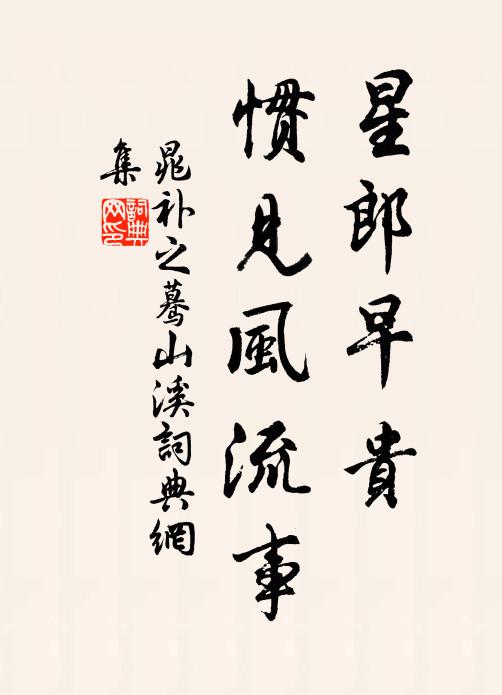 星郎早貴
慣見風流事
晁补之蓦山溪詞典網
集
詞典
网印